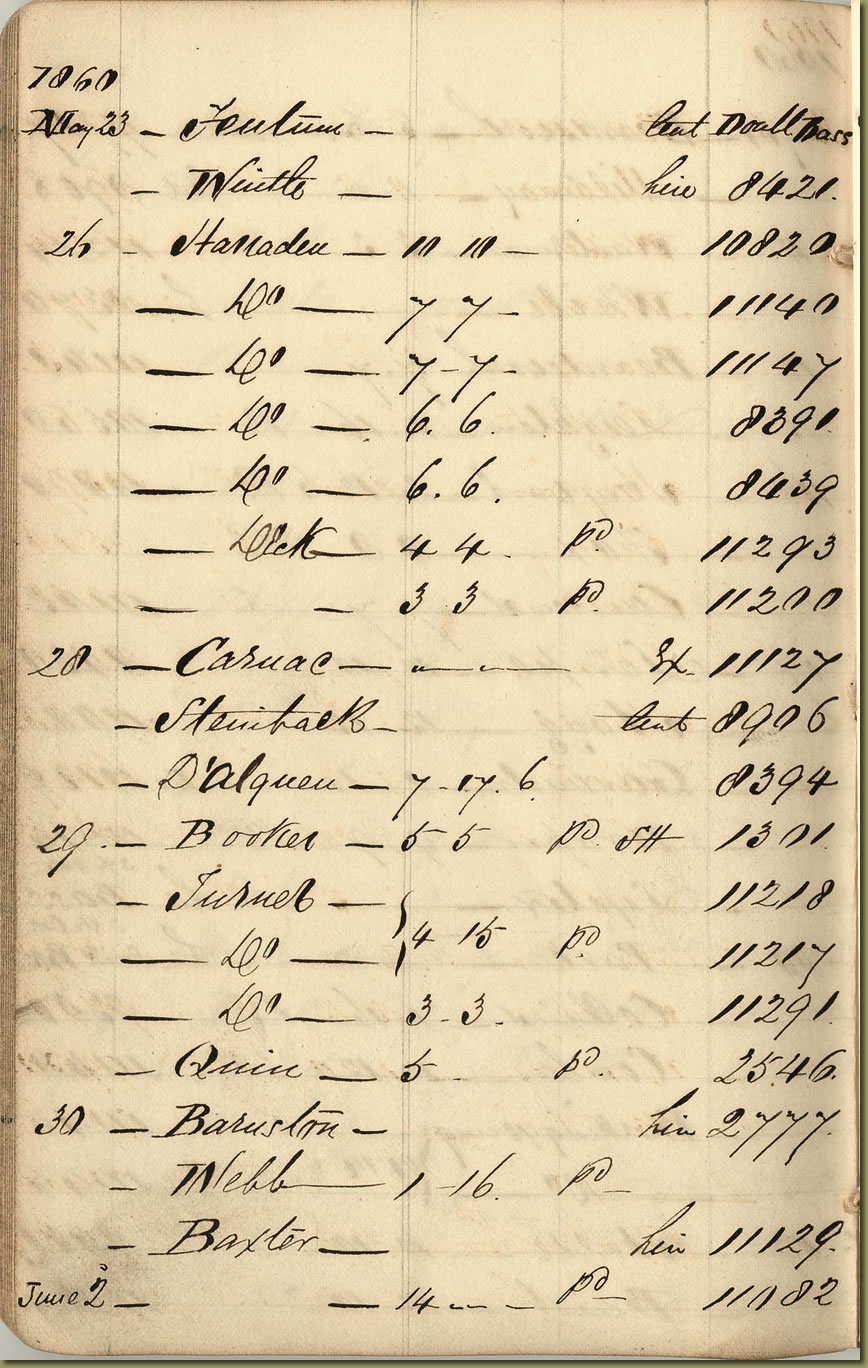 1860
May 23 — Fentum — lent Doubl Bass
— Wintle — hire 8421.
26 — Hanaden — 10 10 — 10820
— Do — 7 7 — 11140
— Do — 7 - 7 - 11147
— Do — 6. 6. 8391
— Do — 6. 6. 8439
— Dick — 4 4 . pd. 11293
— — 3 3 pd. 11200
28 — Carnac — " — " — Ex. 11127
— Steinback — lent 8906
— D'Alquen — 7 - 17. 6. 8394
29. — Booker — 5 5 pd. SH 1301.
— Turner — 11218
— Do — } 4 15 pd 11217
— Do — 3 - 3. 11291.
— Quin — 5 - pd. 2546.
30 — Barnston — hire 2777.
— Webb — 1 - 16. pd —
— Baxter — hire 11129.
June 2 — — 14 — - — pd — 11082